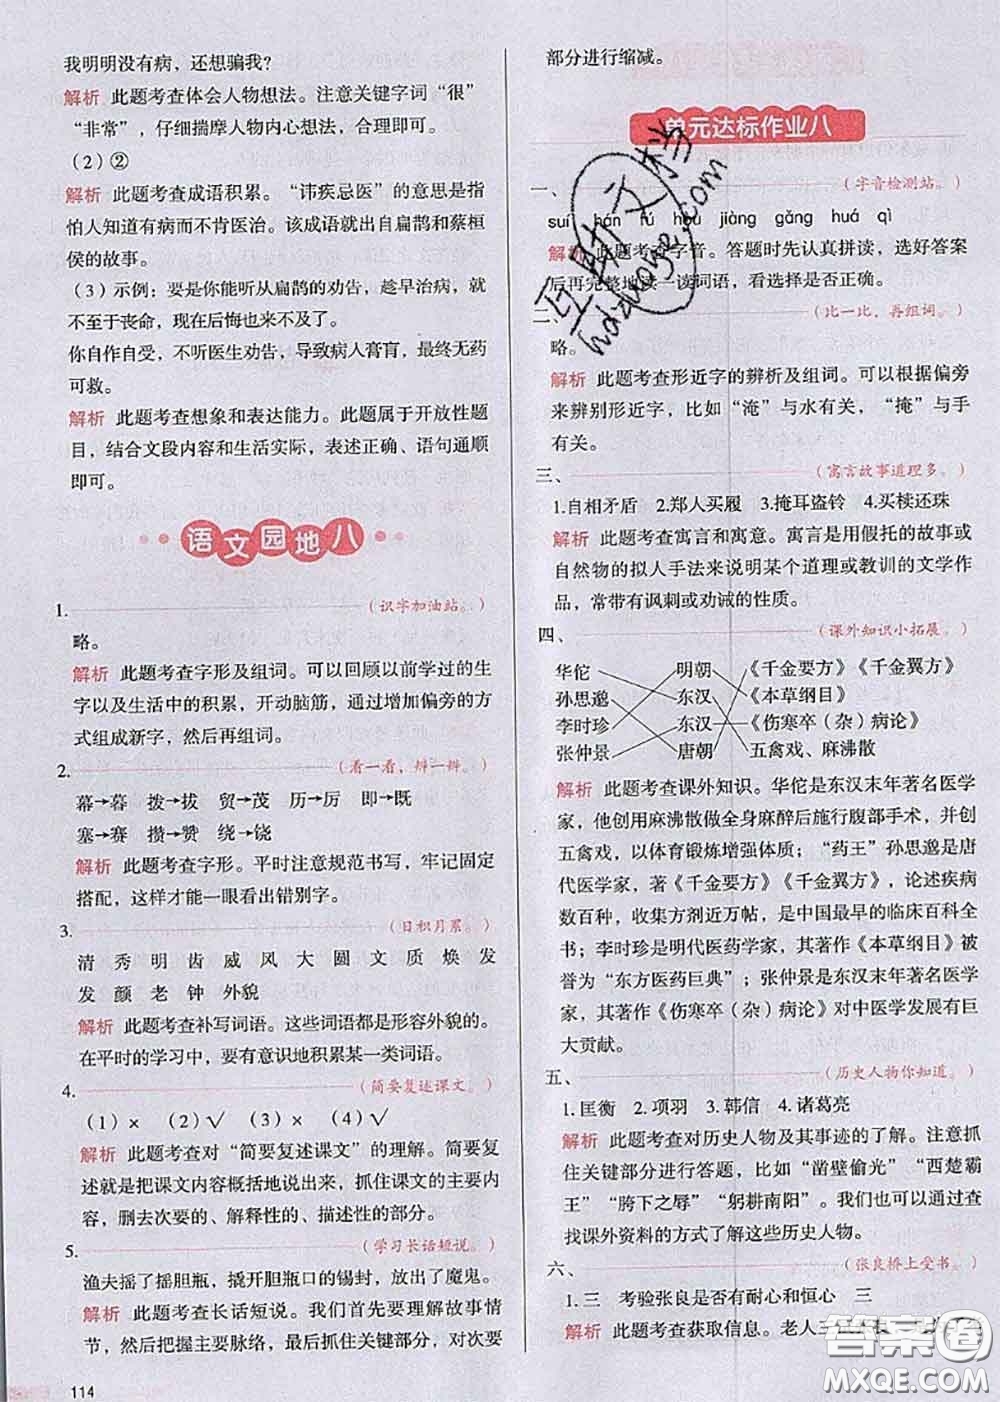 我明明没有病，还想骗我？
解析 此题考查体会人物想法。注意关键字词“很”
“非常”，仔细揣摩人物内心想法，合理即可。
（2）②
解析 此题考查成语积累。“讳疾忌医”的意思是指
怕人知道有病而不肯医治。该成语就出自扁鹊和蔡桓
侯的故事。
（3）示例：要是你能听从扁鹊的劝告，趁早治病，就
不至于丧命，现在后悔也来不及了。
你自作自受，不听医生劝告，导致病入膏肓，最终无药
可救。
解析 此题考查想象和表达能力。此题属于开放性题
目，结合文段内容和生活实际，表述正确、语句通顺
即可。
语文园地八
1. （识字加油站。）
略。
解析 此题考查字形及组词。可以回顾以前学过的生
字以及生活中的积累，开动脑筋，通过增加偏旁的方
式组成新字，然后再组词。
2. （看一看，辨一辨。）
幕→暮 拨→拔 贸→茂 历→厉 即→既
塞→赛 攒→赞 绕→饶
解析 此题考查字形。平时注意规范书写，牢记固定
搭配，这样才能一眼看出错别字。
3. （日积月累。）
清 秀 明 齿 威 风 大 圆 文 质 焕 发
发 颜 老 钟 外貌
解析 此题考查补写词语。这些词语都是形容外貌的。
在平时的学习中，要有意识地积累某一类词语。
4. （简要复述课文。）
（1）× （2）√ （3）× （4）√
解析 此题考查对“简要复述课文”的理解。简要复
述就是把课文内容概括地说出来，抓住课文的主要内
容，删去次要的、解释性的、描述性的部分。
5. （学习长话短说。）
渔夫摇了摇胆瓶，撬开胆瓶口的锡封，放出了魔鬼。
解析 此题考查长话短说。我们首先要理解故事情
节，然后分析主要脉络，最后抓住关键部分，对次要
114
部分进行缩减。
单元达标作业八
一、 （字音检测站。）
suí hán rú hòu jiàng gǎng huá qì
解析 此题考查字音。答题时先认真拼读，选好答案
后再完整地读一读词语，看选择是否正确。
二、 （比一比，再组词。）
略。
解析 此题考查形近字的辨析及组词。可以根据偏旁
来辨别形近字，比如“淹”与水有关，“掩”与手
有关。
三、 （寓言故事道理多。）
1.自相矛盾 2.郑人买履 3.掩耳盗铃 4.买椟还珠
解析 此题考查寓言和寓意。寓言是用假托的故事或
自然物的拟人手法来说明某个道理或教训的文学作
品，常带有讽刺或劝诫的性质。
四、 （课外知识小拓展。）
华佗 明朝 《千金要方》《千金翼方》
孙思邈 东汉 《本草纲目》
李时珍 东汉 《伤寒卒（杂）病论》
张仲景 唐朝 五禽戏、麻沸散
解析 此题考查课外知识。华佗是东汉末年著名医学
家，他创用麻沸散做全身麻醉后施行腹部手术，并创
五禽戏，以体育锻炼增强体质；“药王”孙思邈是唐
代医学家，著《千金要方》《千金翼方》，论述疾病
数百种，收集方剂近万帖，是中国最早的临床百科全
书；李时珍是明代医药学家，其著作《本草纲目》被
誉为“东方医药巨典”；张仲景是东汉末年著名医学
家，其著作《伤寒卒（杂）病论》对中医学发展有巨
大贡献。
五、 （历史人物你知道。）
1.匡衡 2.项羽 3.韩信 4.诸葛亮
解析 此题考查对历史人物及其事迹的了解。注意抓
住关键部分进行答题，比如“凿壁偷光”“西楚霸
王”“胯下之辱”“躬耕南阳”。我们也可以通过查
找课外资料的方式了解这些历史人物。
六、 （张良桥上受书。）
1.三 考验张良是否有耐心和恒心 三
解析 此题考查获取信息。老人三
互助文档
hdzuoye.com
答案圈
MXQE.COM